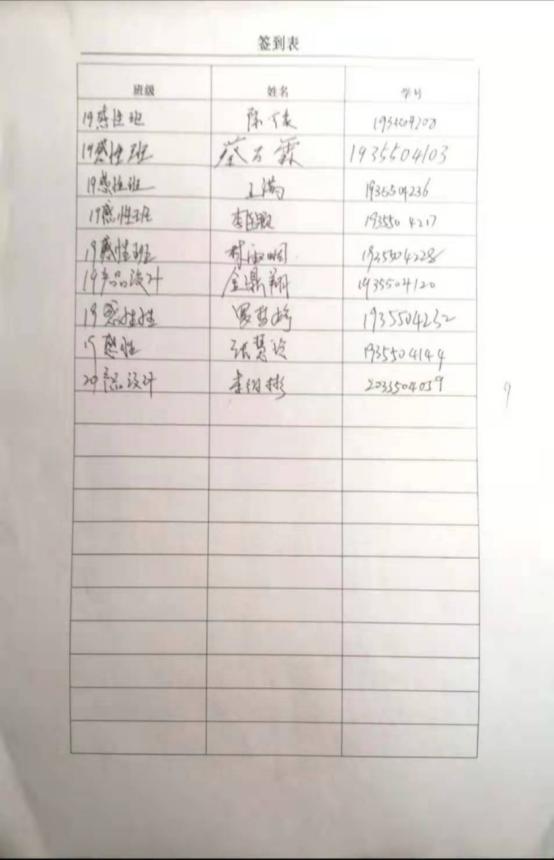 签到表
班级 姓名 学号
19感性班 1935504200
19感性班 蔡万霖 1935504103
19感性班 王满 1935504236
19感性班 1935504217
19感性班 1935504228
19产品设计 金鼎翔 1935504120
19感性 1935504232
19感性 张慧 1935504144
20产品设计 李绍彬 2035504039
9